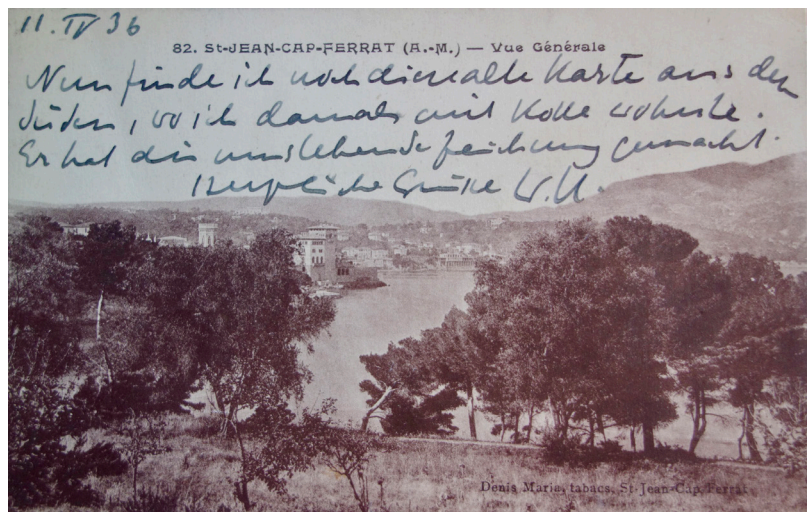 11. IV 36
82. St-JEAN-CAP-FERRAT (A.-M.) — Vue Générale
Nun finde ich noch diese alte Karte aus dem
Süden, wo ich damals mit Kolle wohnte.
Er hat die umstehende Zeichnung gemacht.
Herzliche Grüße W.U.
Denis Marie, tabacs, St-Jean-Cap Ferrat